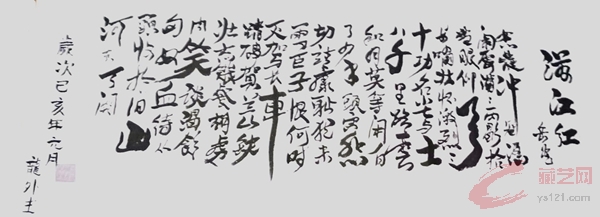 满江红
岳飞
怒发冲冠凭
阑处潇潇雨歇抬
望眼仰天
长啸壮怀激烈三
十功名尘与土
八千里路云
和月莫等闲白
了少年头空悲
切靖康耻犹未
雪臣子恨何时
灭驾长车
踏破贺兰山缺
壮志饥餐胡虏
肉笑谈渴饮
匈奴血待从
头收拾旧山
河朝天阙
岁次己亥年元月
藏艺网
ys121.com